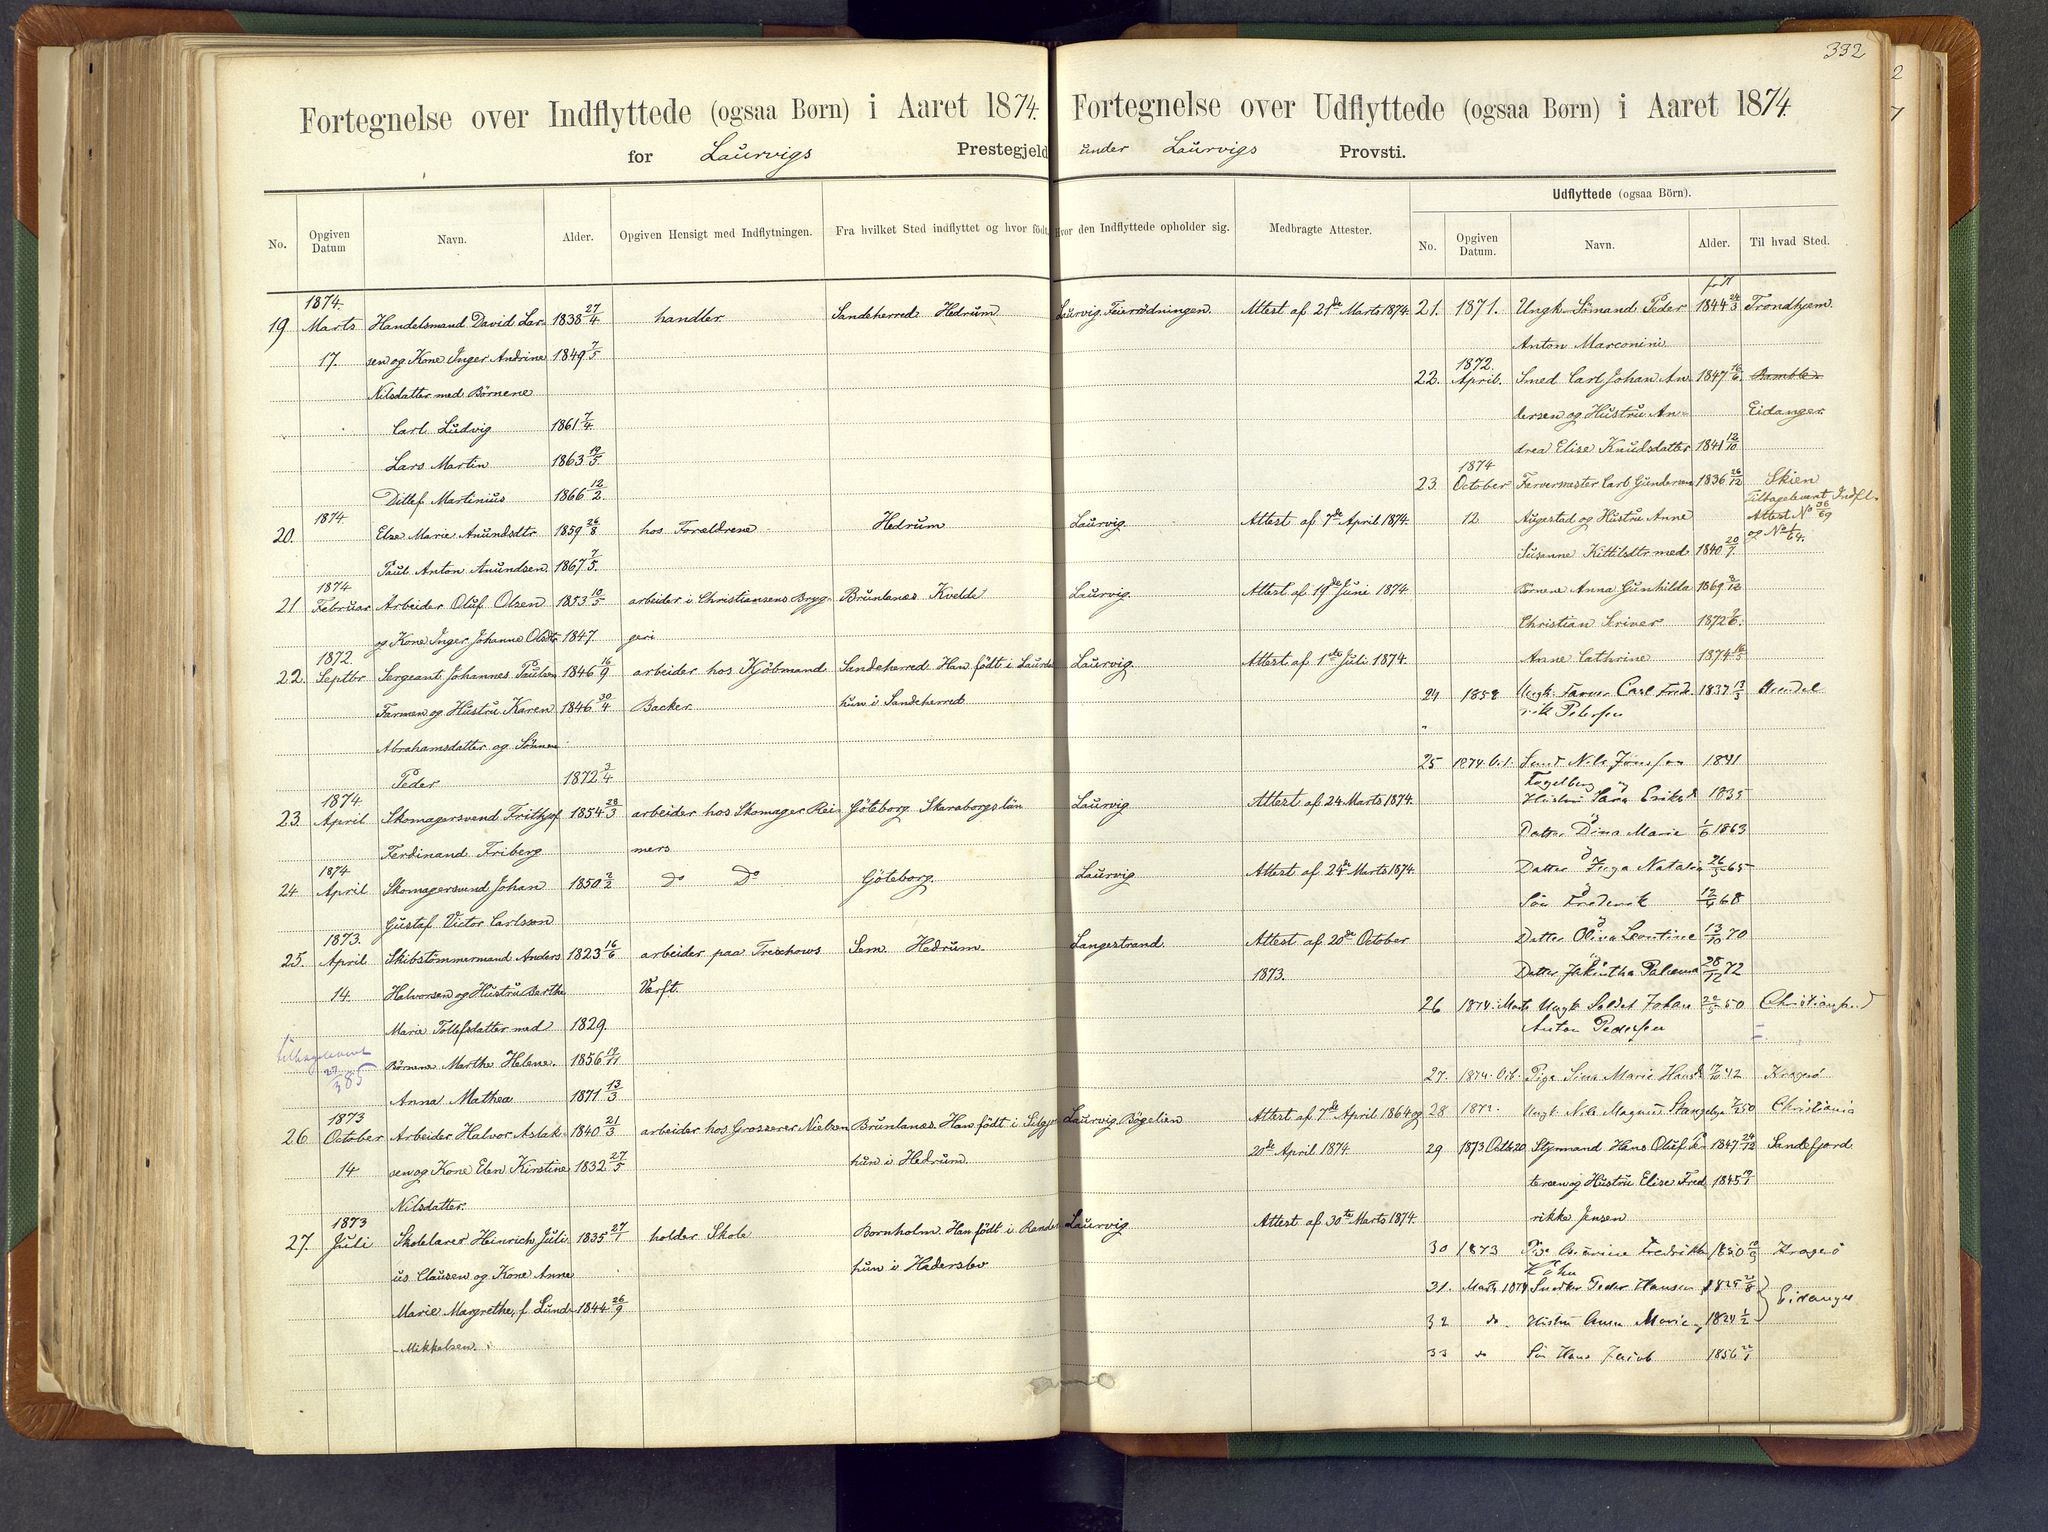 332
Fortegnelse over Indflyttede (ogsaa Børn) i Aaret 1874.
for Laurvigs Prestegjeld
No. Opgiven Datum Navn. Alder. Opgiven Hensigt med Indflytningen. Fra hvilket Sted indflyttet og hvor født.
Fortegnelse over Udflyttede (ogsaa Børn) i Aaret 1874.
under Laurvigs Provsti.
Hvor den Indflyttede opholder sig. Medbragte Attester.
Udflyttede (ogsaa Børn).
No. Opgiven Datum. Navn. Alder. Til hvad Sted.
1874.
19 Marts Handelsmand David Lar- 1838 27/4 handler Sandeherred Hedrum Laurvig Feierrödningen Attest af 21de Marts 1874
17. sen og Kone Inger Andrine 1849 7/5
Nilsdatter med Börnene
Carl Ludvig 1861 7/4
Lars Martin 1863 19/5
Ditlef Martinius 1866 12/2
1874.
20. Else Marie Anundsdtr 1859 26/8 hos Forældrene Hedrum Laurvig. Attest af 7de April 1874.
Paul Anton Anundsen. 1867 7/5
1874
21 Februar Arbeider Oluf Olsen 1853 10/5 arbeider i Christiansens Bryg- Brunlanæs Kvelde Laurvig. Attest af 19de Juni 1874.
og Kone Inger Johanne Olsdtr 1847. geri
1872.
22. Septbr Sergeant Johannes Paulsen 1846 16/9 arbeider hos Kjöbmand Sandeherred Han födt i Laurdal Laurvig Attest af 1ste Juli 1874.
Farmen og Hustru Karen 1846 30/4 Backer. hun i Sandeherred
Abrahamsdatter og Sönnen
Peder 1872 3/4
1874
23. April Skomagersvend Frithjof 1854 28/3 arbeider hos Skomager Rei- Göteborg Skaraborgs län Laurvig Attest af 24 Marts 1874.
Ferdinand Friberg mers
1874
24 April Skomagersvend Johan 1850 2/2 Do Do Göteborg. Laurvig Attest af 24de Marts 1874.
Gustaf Victor Carlsson
1873.
25. April Skibstömmermand Anders 1823 16/6 arbeider paa Treschows Sem. Hedrum. Langestrand. Attest af 20de October
14. Halvorsen og Hustru Berthe Værft. 1873.
Marie Tollefsdatter med 1829.
tilbageleveret Börnene Marthe Helene. 1856 19/11
Anna Mathea 1871 13/3
1873
26 October Arbeider Halvor Aslak- 1840 21/3 arbeider hos Grosserer Nielsen Brunlanæs Han födt i Laurvig Bögelien Attest af 7de April 1864 og
14 sen og Kone Elen Kirstine 1832 27/5 hun i Hedrum. 20de April 1874.
Nilsdatter.
1873
27. Juli Skolelærer Heinrich Juli- 1835 27/1 holder Skole Bornholm. Han födt i Laurvig Attest af 30te Marts 1874.
us Clausen og Kone Anne hun i Hadersbv
Marie Margrethe, f. Lund- 1844 26/9
Mikkelsen.
födt
21. 1871. Ungk. Sömand Peder 1844 24/3 Trondhjem
Anton Marconini
1872.
22. April. Smed Carl Johan An- 1847 16/6 Bamble
dersen og Hustru An- Eidanger
drea Elise Knudsdatter 1841 12/10
1874
23. October Farvermester Carl Gundersen 1836 26/12 Skien
Tilbageleveret Indfl.
12. Augestad og Hustru Anne Attest No 36/69
Susanne Kittilsdtr med 1840 20/7 og No
Börnene Anna Gunhilda 1869
Christian Scriver 1872
Anne Cathrine 1874
24 1858 Ungk. Farver Carl Frede- 1837 13/3 Arendal
rik Petersen
25 1874 Nils Jönssen 1841
Fogelberg
Hustru Sara Eriksd 1835
Datter Dina Marie 1/6 1863
Datter Inga Natalia 26/5 65
Sön Frederik 68
Datter Oliva Leontine 13/10 70
Datter 28/12 72
26 1874 Marts Ungk Soldat Johan 50
Anton Pedersen
27. 1874. Pige Sina Marie Hansd 42 Kragerö
28 Ungk. Nils Magnus 50 Christiania
29 1873 Octb 20 Styrmand Hans Oluf Pe- 1847 24/12 Sandefjord
tersen og Hustru Elise Fred- 1845
rikke Jensen
30 1873 Fredrikke 1850 Kragerö
31. Marts 1874 Snedker Peder Hansen 1825 Eidanger
32 do. Hustru Anna Marie 1824 1/2
33 do Sön Hans Jacob 1856